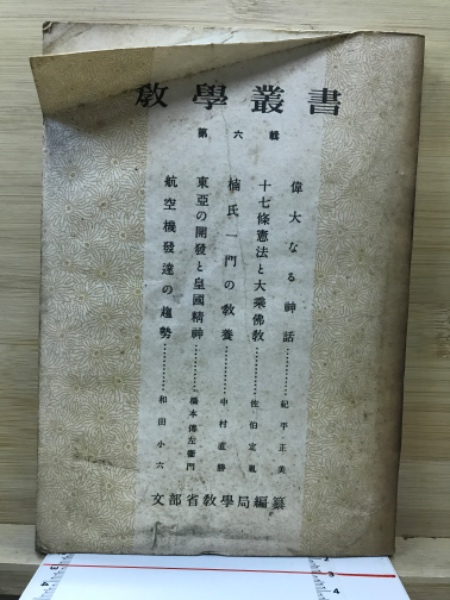 教學叢書
第六輯
偉大なる神話…………紀平正美
十七條憲法と大乘佛教…………佐伯定胤
楠氏一門の教養…………中村直勝
東亞の開發と皇國精神…………橋本傳左衞門
航空機發達の趨勢…………和田小六
文部省教學局編纂